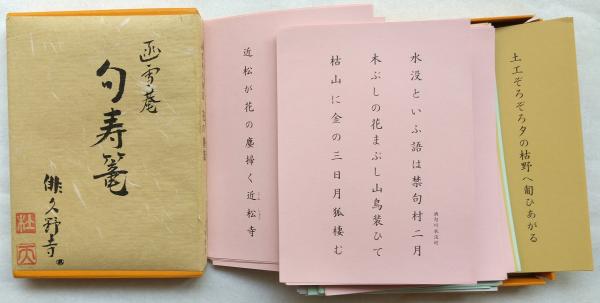 函雪菴
句寿篭
俳久野寺
近松が花の塵掃く近松寺
水没といふ語は禁句村二月
木ぶしの花まぶし山鳥装ひて
枯山に金の三日月狐棲む
土工ぞろぞろ夕の枯野へ匍ひあがる